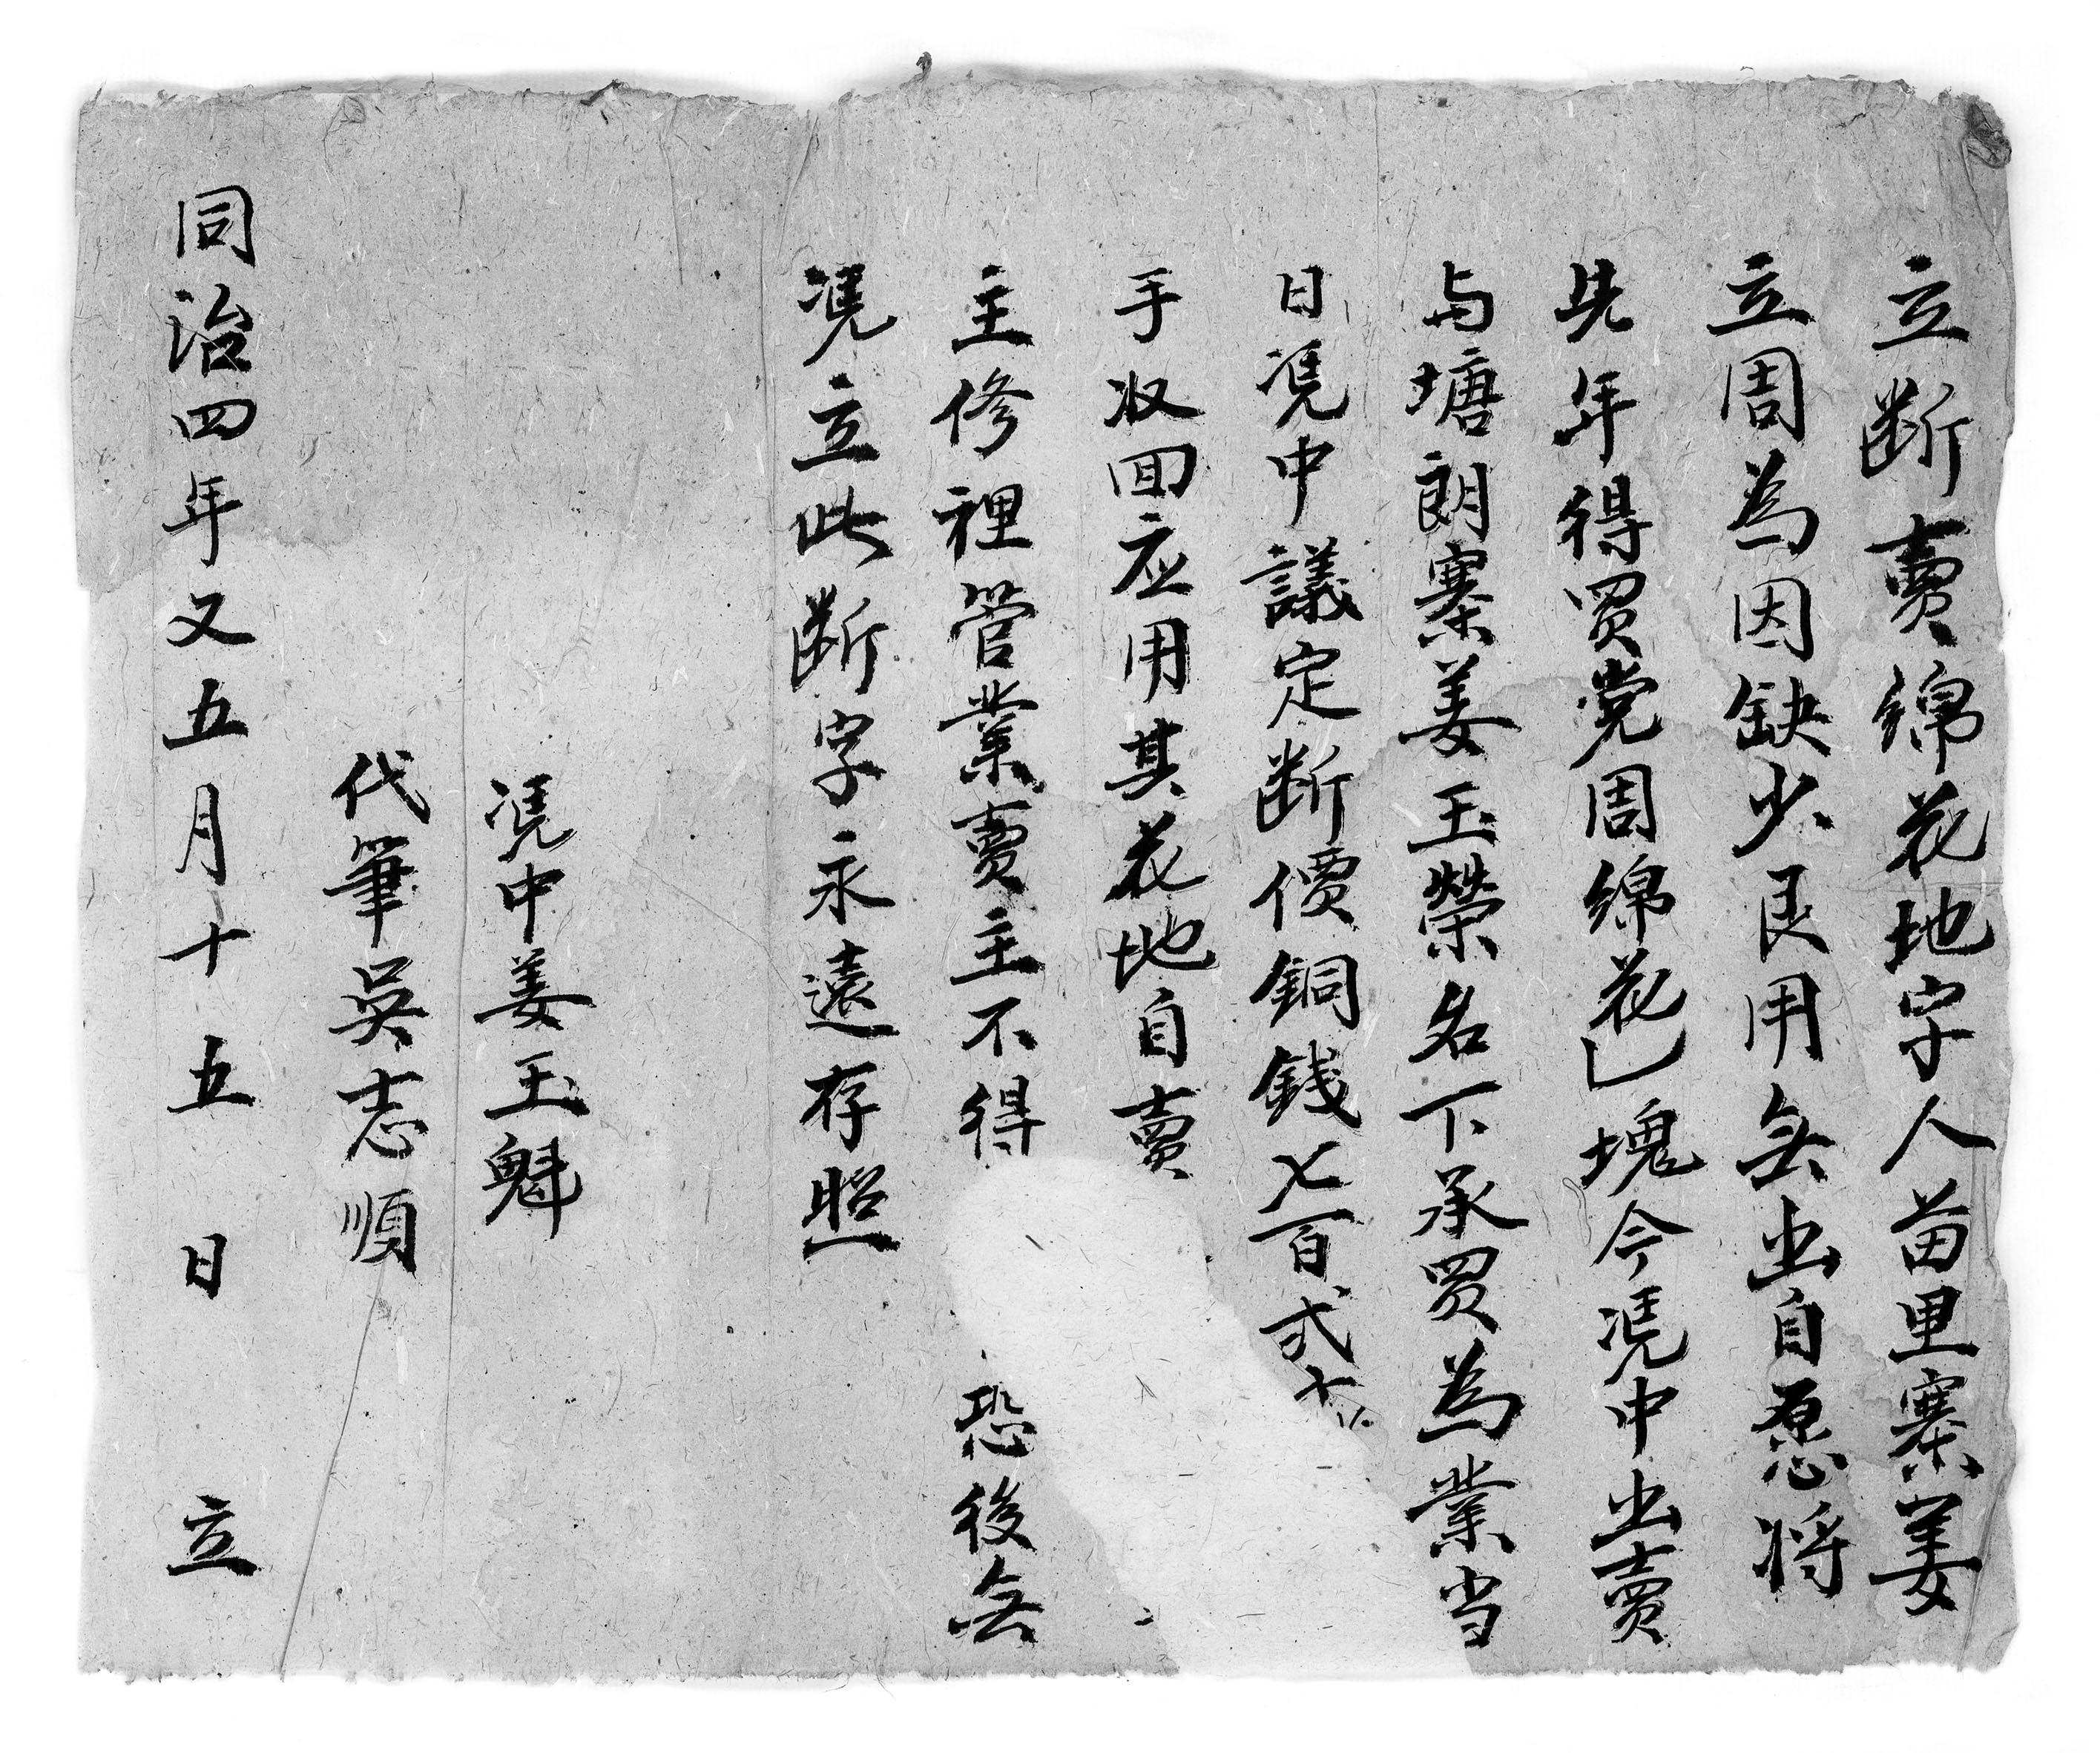 立断賣綿花地字人苗里寨姜
立周為因缺少艮用無出自愿將
先年得買党周綿花乚塊今凭中出賣
与塘朗寨姜玉榮名下承買為業当
日凭中議定断價銅錢七百弍十
手收回应用其花地自賣
主修裡管業賣主不得 恐後無
凭立此断字永遠存照
凭中姜玉魁
代筆吳志順
同治四年又五月十五日立